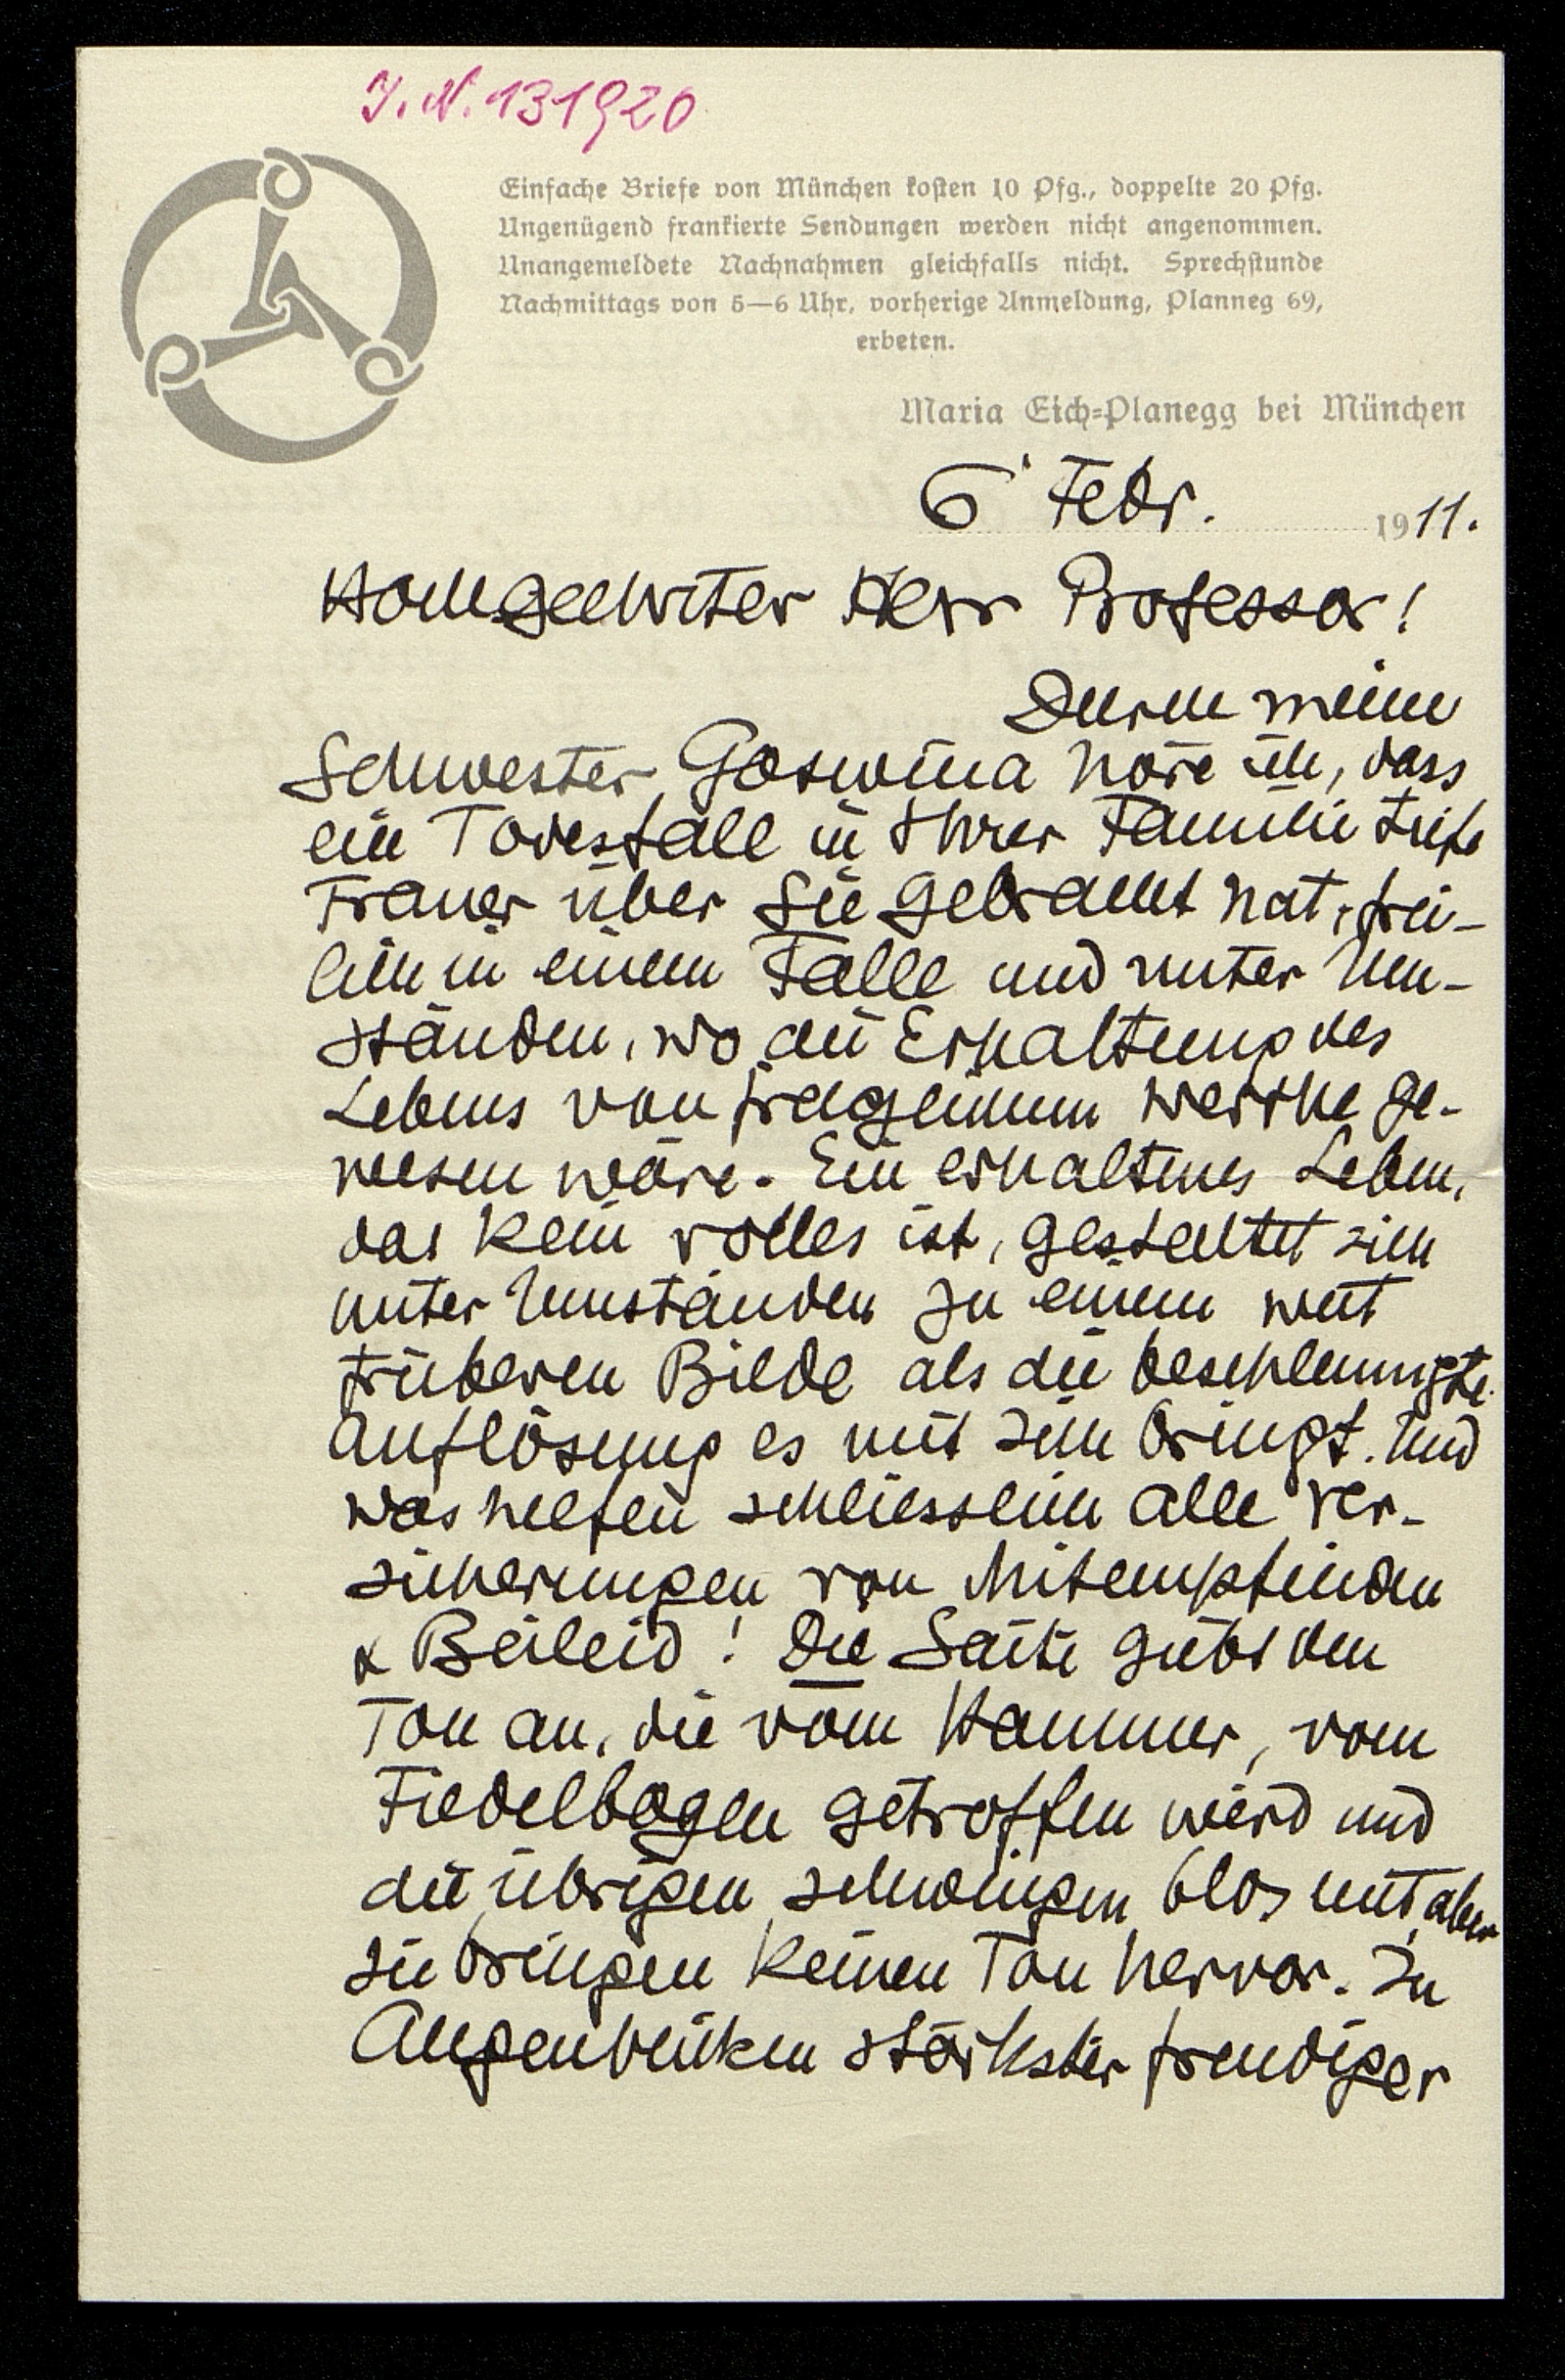 J. N. 131920
Einfache Briefe von München kosten 10 Pfg., doppelte 20 Pfg.
Ungenügend frankierte Sendungen werden nicht angenommen.
Unangemeldete Nachnahmen gleichfalls nicht. Sprechstunde
Nachmittags von 5—6 Uhr, vorherige Anmeldung, Planneg 69,
erbeten.
Maria Eich=Planegg bei München
6' Febr. 1911.
Hochgeehrter Herr Professor!
Durch meine
Schwester Goswina höre ich, dass
ein Todesfall in Ihrer Familie tiefe
Trauer über Sie gebracht hat, frei-
lich in einem Falle und unter Um-
ständen, wo die Erhaltung des
Lebens von fraglichem Werthe ge-
wesen wäre. Ein erhaltenes Leben,
das kein volles ist, gestaltet sich
unter Umständen zu einem weit
trüberen Bilde als die beschleunigte
Auflösung es mit sich bringt. Und
was helfen schliesslich alle Ver-
sicherungen von Mitempfinden
& Beileid! Die Saite giebt den
Ton an, die vom Hammer, vom
Fiedelbogen getroffen wird und
die übrigen schwingen blos mit, aber
sie bringen keinen Ton hervor. In
Augenblicken stärkster freudiger